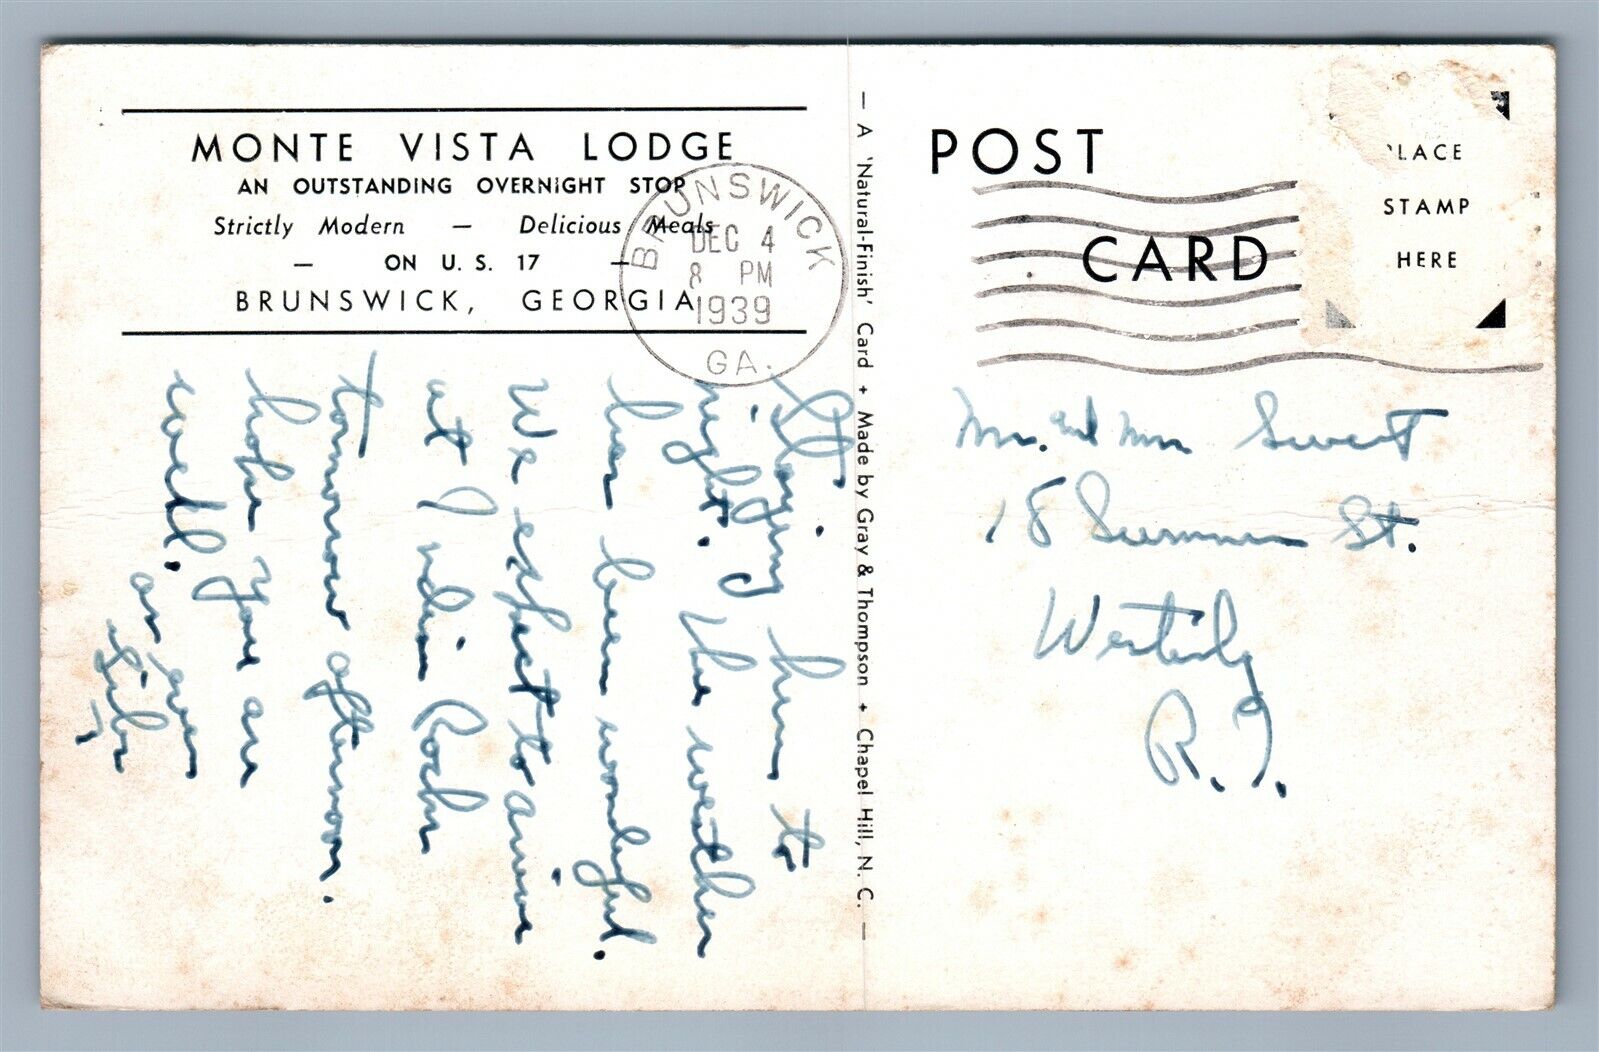 MONTE VISTA LODGE
AN OUTSTANDING OVERNIGHT STOP
Strictly Modern — Delicious Meals
— ON U. S. 17 —
BRUNSWICK, GEORGIA
BRUNSWICK
DEC 4
8 PM
1939
GA.
Staying here to
night. The weather
has been wonderful.
We expect to arrive
at Indian Rocks
tomorrow afternoon.
hope you are
well.
as ever
— A 'Natural-Finish' Card + Made by Gray & Thompson + Chapel Hill, N. C. —
POST
CARD
'LACE
STAMP
HERE
Mr. and Mrs Sweet
18 Summer St.
Westerly
R.I.